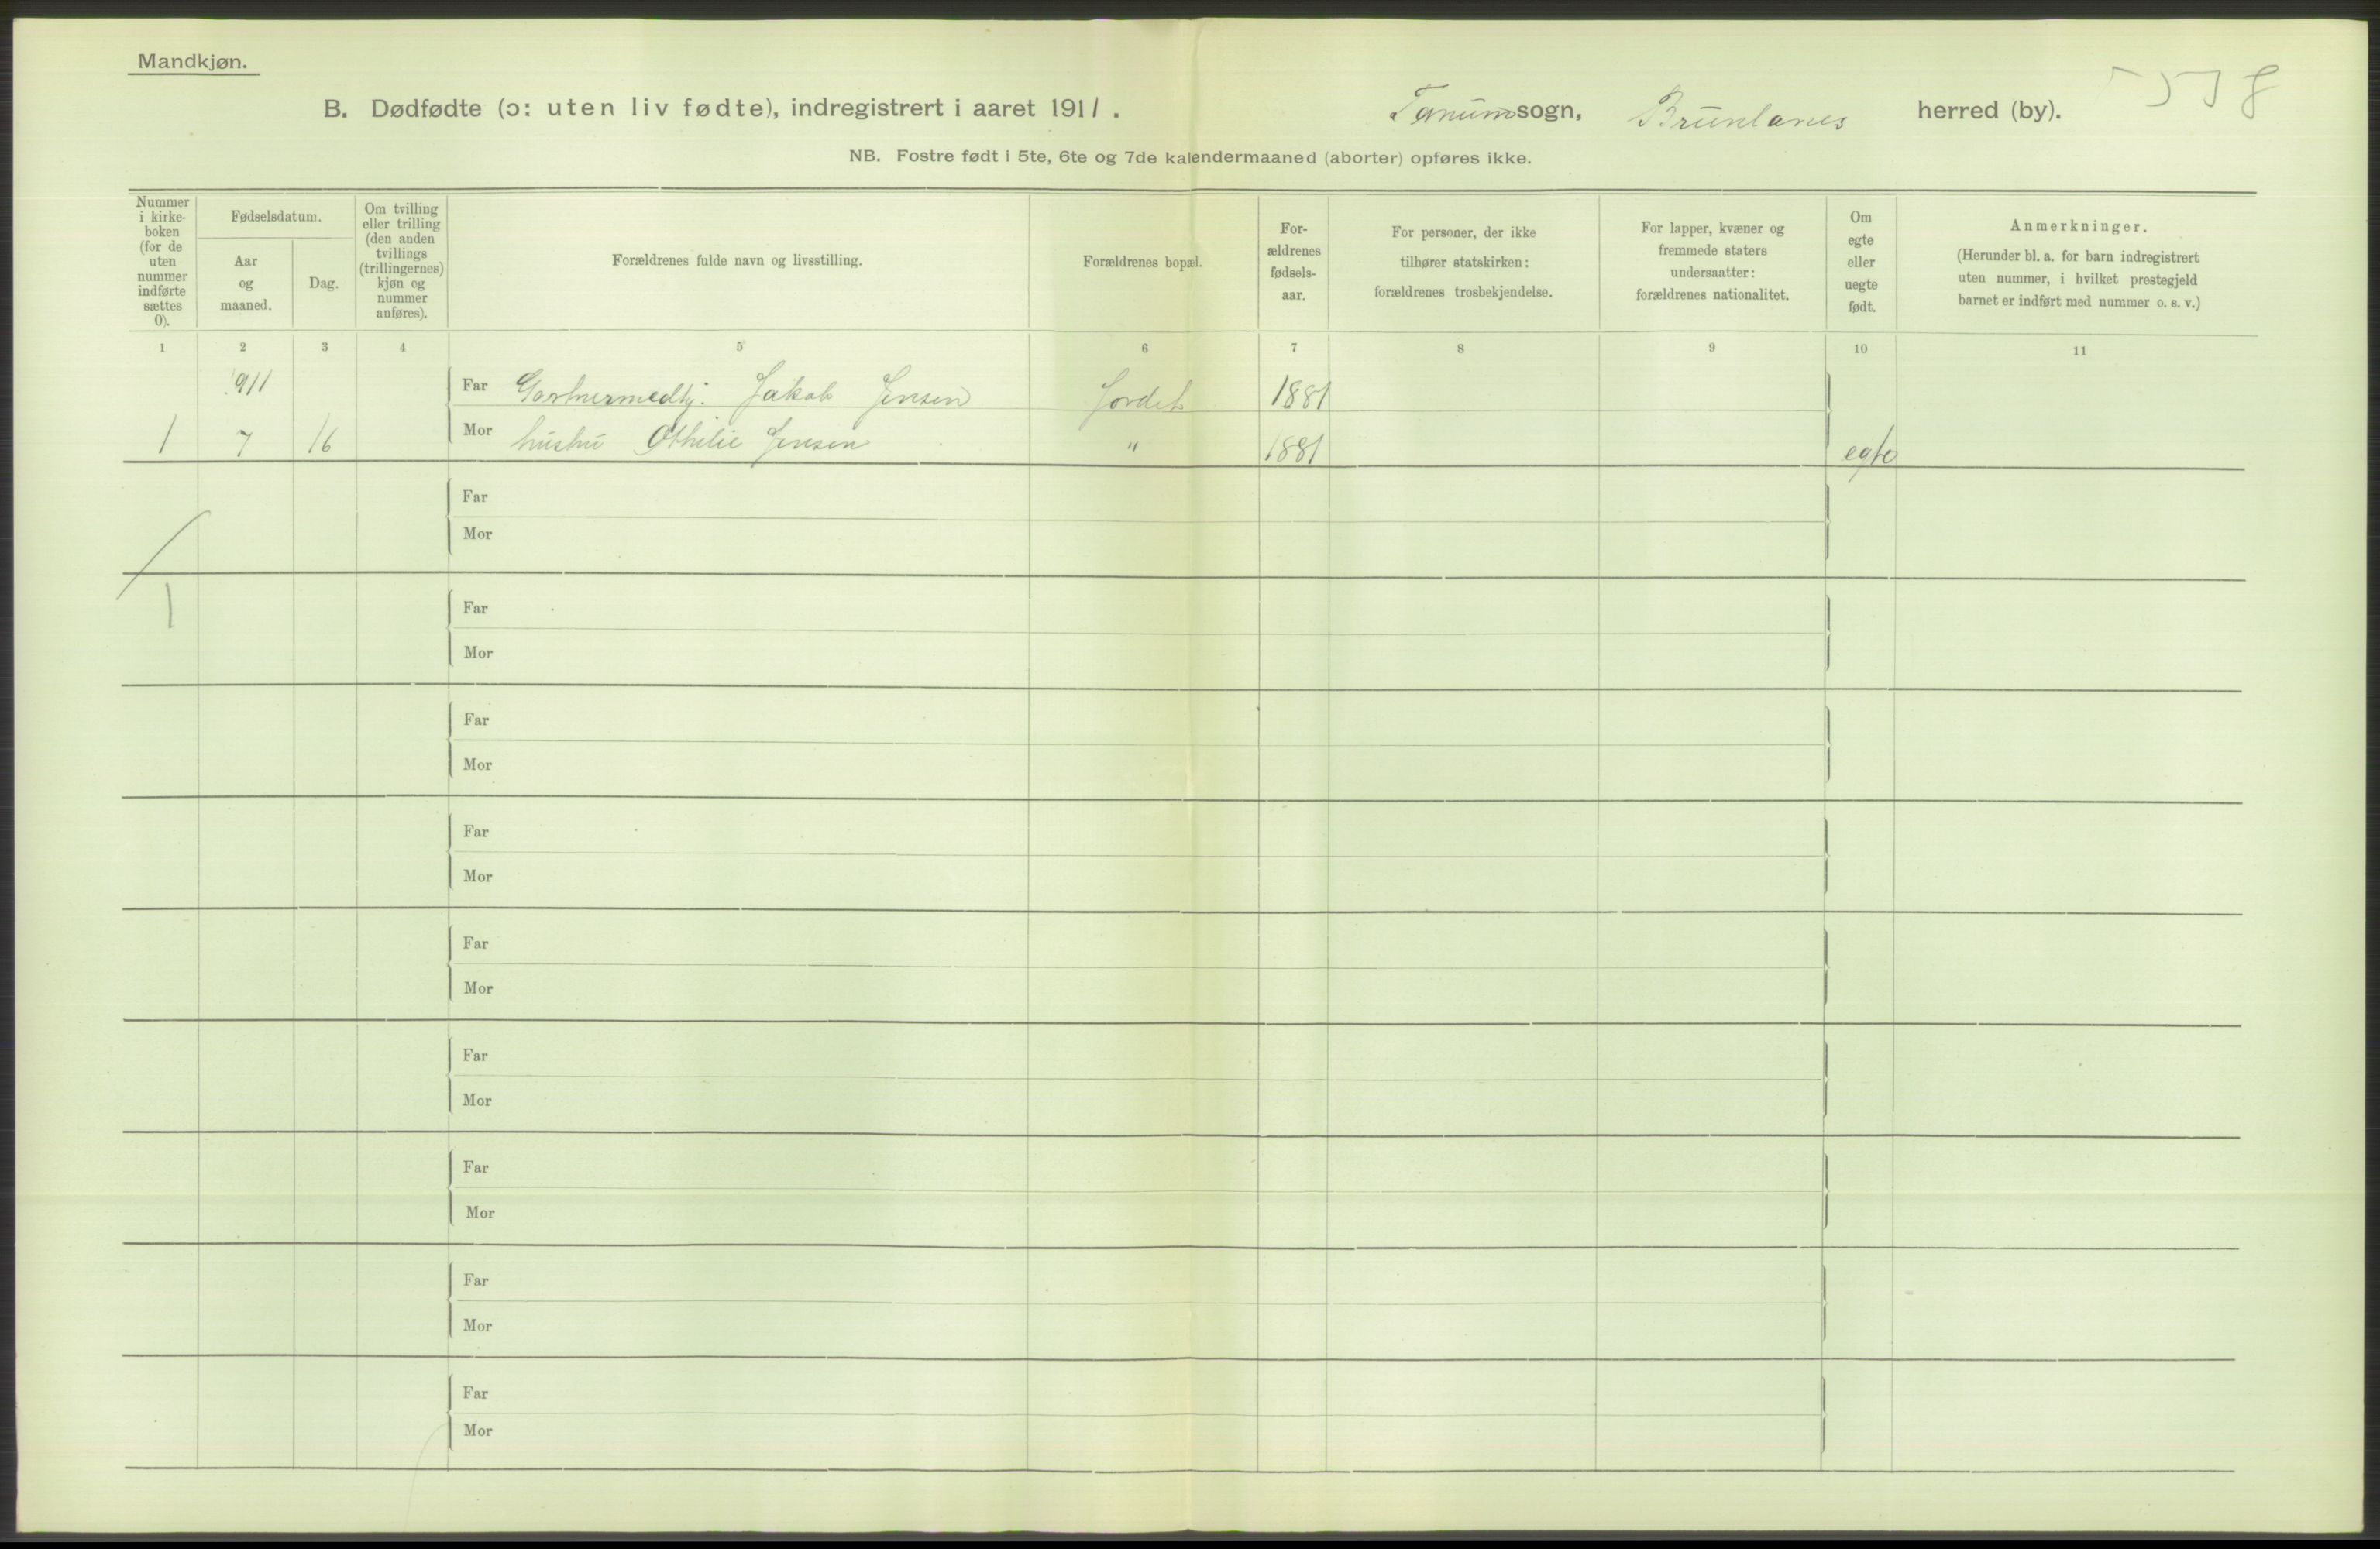 Mandkjøn.
B. Dødfødte (ɔ: uten liv fødte), indregistrert i aaret 1911. Tanum sogn, Brunlanes herred (by).
NB. Fostre født i 5te, 6te og 7de kalendermaaned (aborter) opføres ikke.
Nummer
i kirke-
boken
(for de
uten
nummer
indførte
sættes
0).
Fødselsdatum.
Aar
og
maaned.
Dag.
Om tvilling
eller trilling
(den anden
tvillings
(trillingernes)
kjøn og
nummer
anføres).
Forældrenes fulde navn og livsstilling.
Forældrenes bopæl.
For-
ældrenes
fødsels-
aar.
For personer, der ikke
tilhører statskirken:
forældrenes trosbekjendelse.
For lapper, kvæner og
fremmede staters
undersaatter:
forældrenes nationalitet.
Om
egte
eller
uegte
født.
Anmerkninger.
(Herunder bl. a. for barn indregistrert
uten nummer, i hvilket prestegjeld
barnet er indført med nummer o. s. v.)
1 2 3 4 5 6 7 8 9 10 11
911 Far Gartnermedhj. Jakob Jensen Jordet 1881
1 7 16 Mor hustru Othilie Jensen " 1881 egte
Far
Mor
1
Far
Mor
Far
Mor
Far
Mor
Far
Mor
Far
Mor
Far
Mor
Far
Mor
Far
Mor